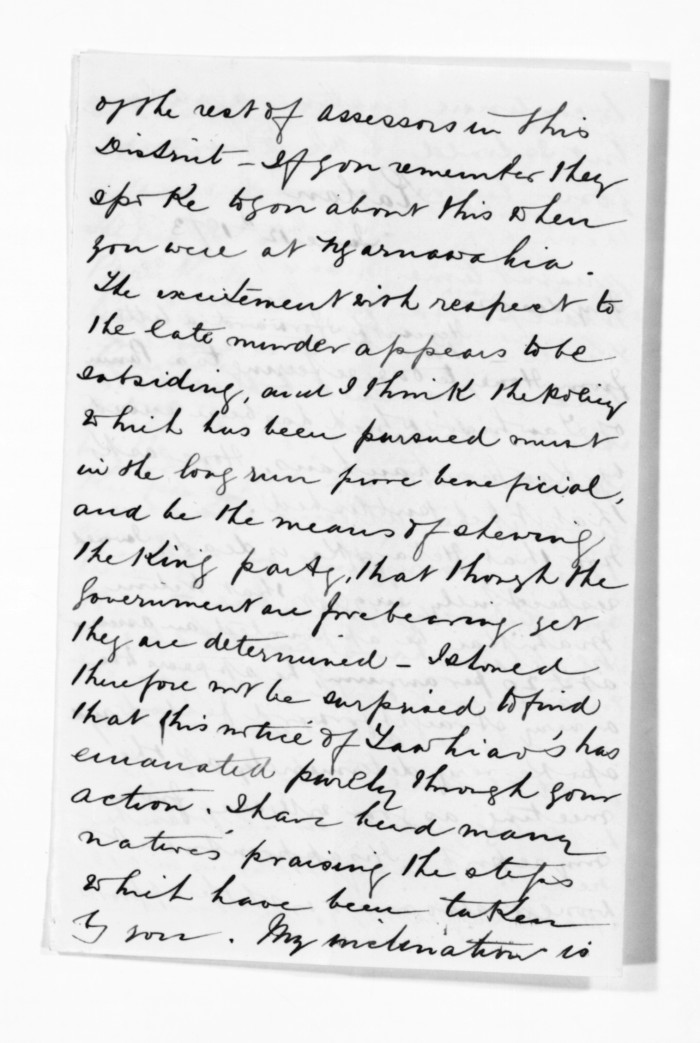 of the rest of assessors in this
District - If you remember they
spoke to you about this when
you were at Ngaruawahia.
The excitement with respect to
the late murder appears to be
subsiding, and I think the policy
which has been pursued must
in the long run prove beneficial,
and be the means of shewing
the King party, that though the
Government are forebearing yet
they are determined - I should
therefore not be surprised to find
that this notice of Tawhiao's has
emanated purely through your
action. I have heard many
natives praising the steps
which have been taken
by you. My inclination is